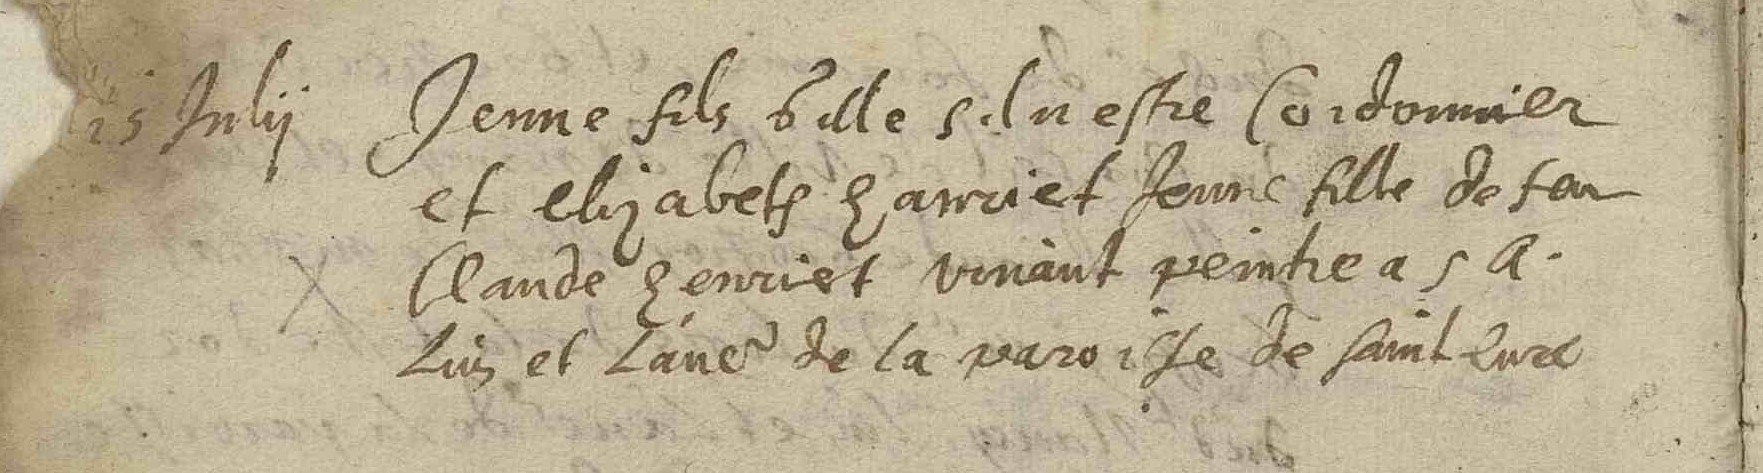 15 Julij Jenne fils Gille siluestre Cordonnier
et elizabeth hanriet Jenne fille de feu
Claude henriet viuant peintre a s A.
Luy et Lane^r de la paroisse de saint Eure